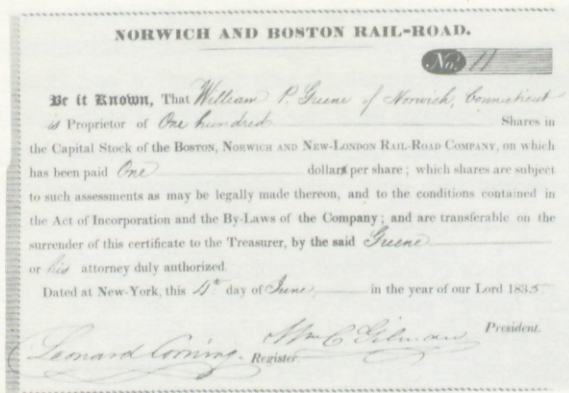 NORWICH AND BOSTON RAIL-ROAD.
No. 11
Be it Known, That William P. Greene of Norwich, Connecticut
is Proprietor of One hundred Shares in
the Capital Stock of the BOSTON, NORWICH AND NEW-LONDON RAIL-ROAD COMPANY, on which
has been paid One dollar per share; which shares are subject
to such assessments as may be legally made thereon, and to the conditions contained in
the Act of Incorporation and the By-Laws of the Company; and are transferable on the
surrender of this certificate to the Treasurer, by the said Greene
or his attorney duly authorized.
Dated at New-York, this 4th day of June, in the year of our Lord 1835
Wm C Gilman President.
Leonard Corning. Register.